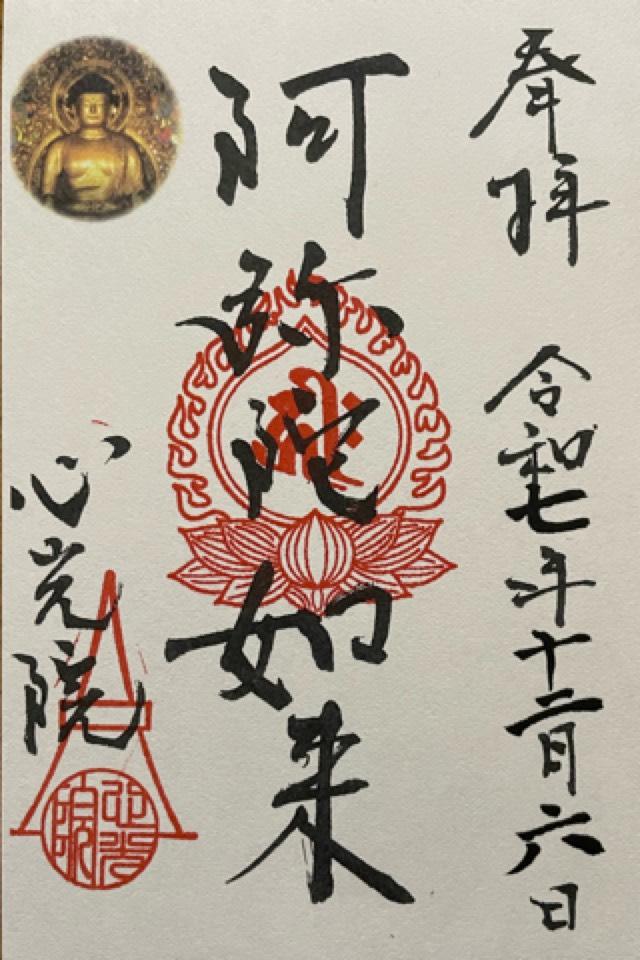 奉拝 令和七年十二月六日
阿弥陀如来
心光院
心光院